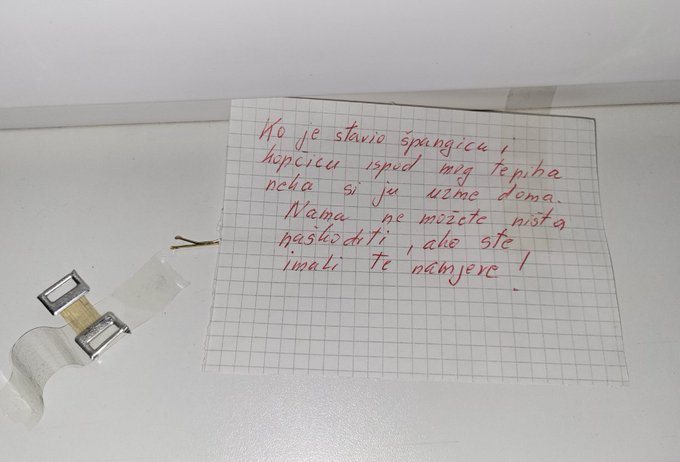 Ko je stavio špangicu i
kopčicu ispod mog tepiha
neka si ju uzme doma.
Nama ne možete ništa
naškoditi, ako ste
imali te namjere!